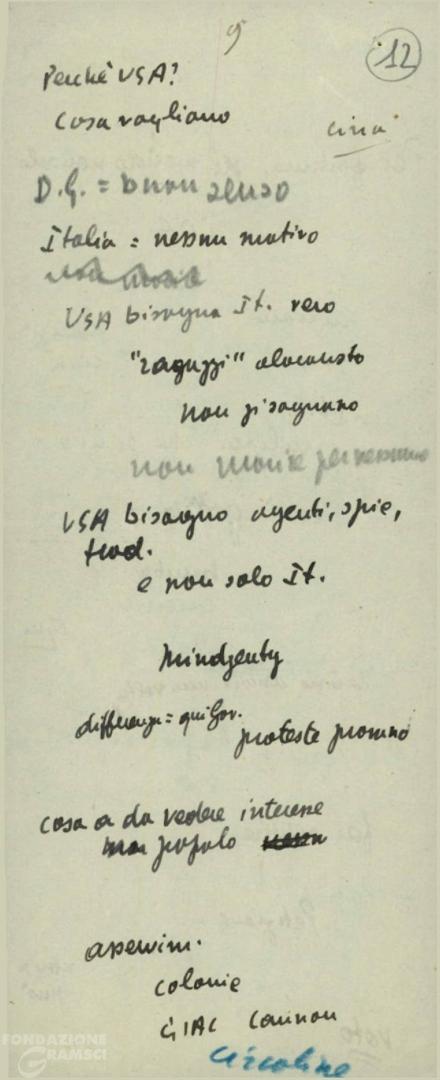 9
12
Perché USA?
Cosa vogliano
Cina
D.G. = buon senso
Italia = nessun motivo
USA bisogna It. vero
"ragazzi" olocausto
non bisognano
non morire per nessuno
USA bisogno agenti, spie,
trad.
e non solo It.
Mindzenty
differenza = qui Gov.
proteste
cosa a da vedere interesse
popolo
asservim.
colonie
GIAC
Circoline
FONDAZIONE
GRAMSCI